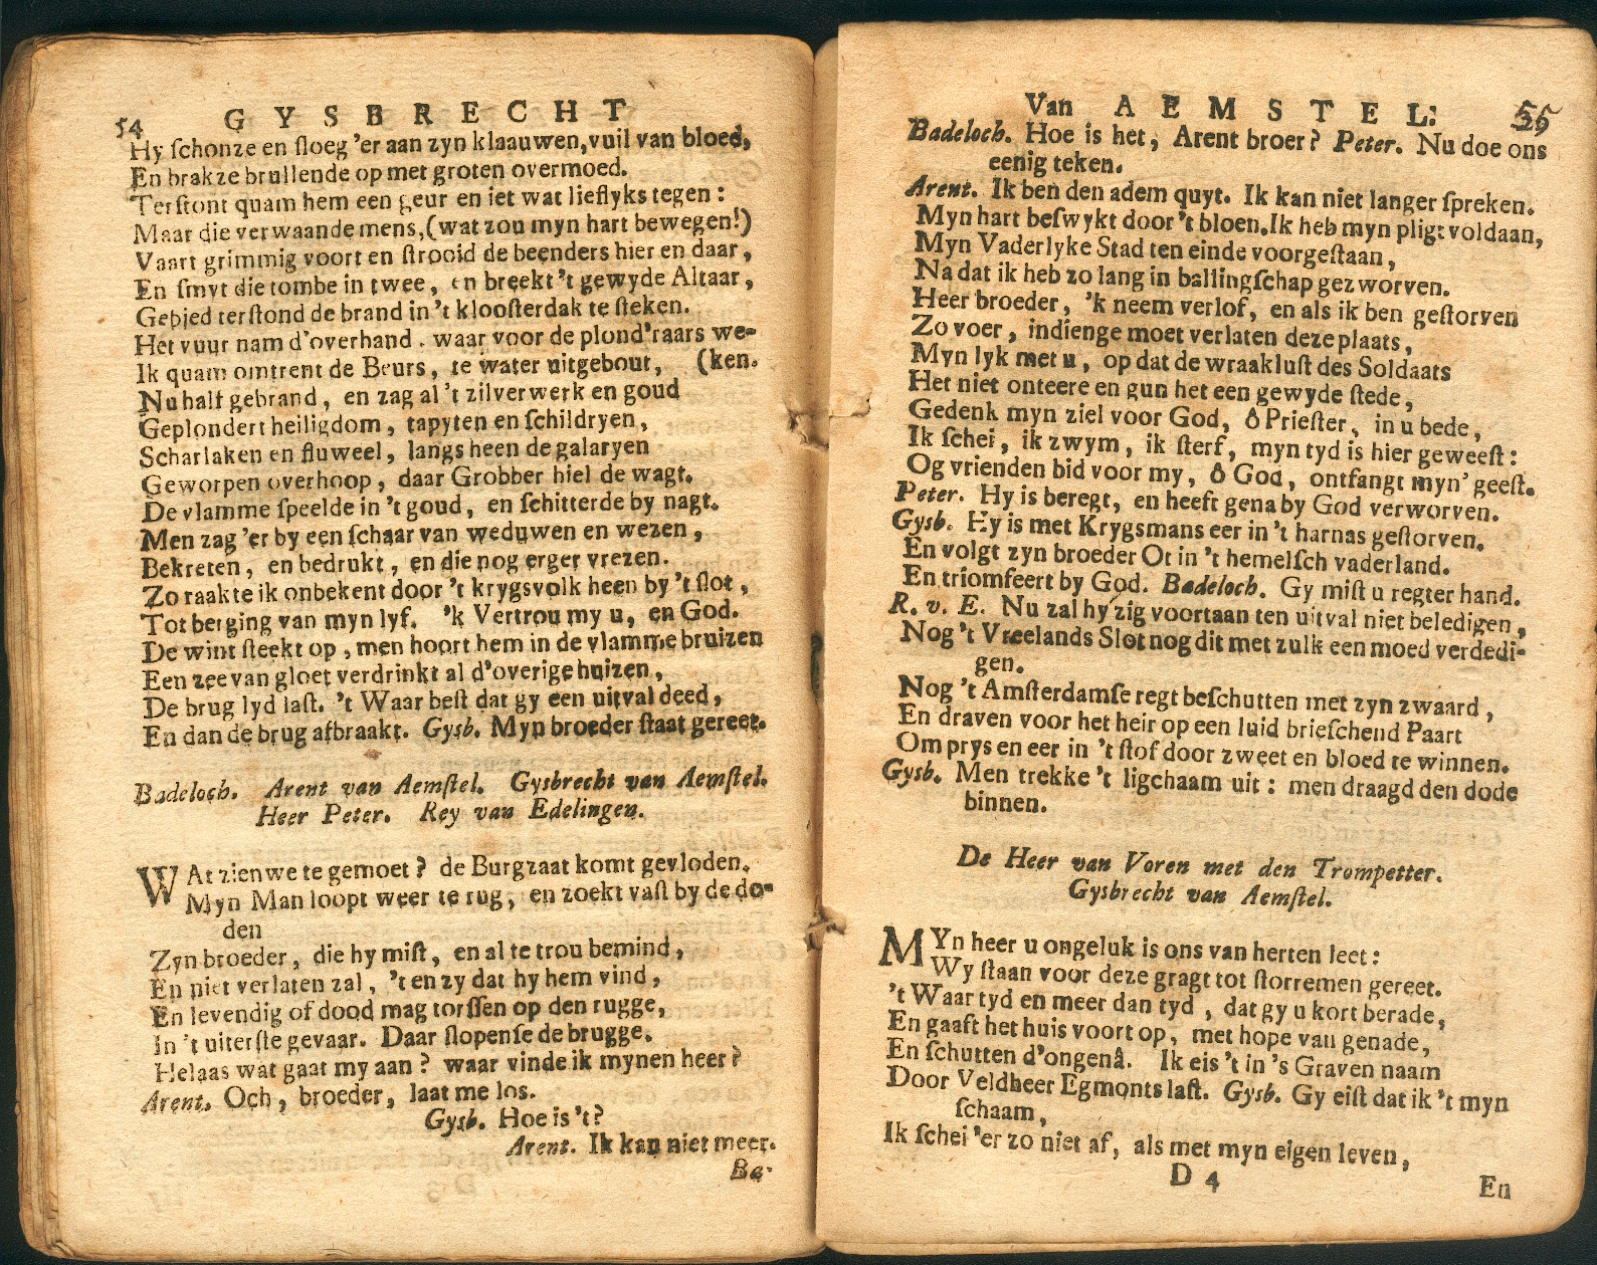 54 GYSBRECHT
Hy ſchonze en ſloeg 'er aan zyn klaauwen, vuil van bloed,
En brakze brullende op met groten overmoed.
Terſtont quam hem een geur en iet wat lieflyks tegen:
Maar die verwaande mens, (wat zou myn hart bewegen!)
Vaart grimmig voort en ſtrooid de beenders hier en daar,
En ſmyt die tombe in twee, en breekt 't gewyde Altaar,
Gebied terſtond de brand in 't kloosterdak te ſteken.
Het vuur nam d'overhand. waar voor de plond'raars we-
Ik quam omtrent de Beurs, te water uitgebout, (ken.
Nu half gebrand, en zag al 't zilverwerk en goud
Geplondert heiligdom, tapyten en ſchildryen,
Scharlaken en fluweel, langs heen de galaryen
Geworpen overhoop, daar Grobber hiel de wagt.
De vlamme ſpeelde in 't goud, en ſchitterde by nagt.
Men zag 'er by een ſchaar van weduwen en wezen,
Bekreten, en bedrukt, en die nog erger vrezen.
Zo raakte ik onbekent door 't krygsvolk heen by 't ſlot,
Tot berging van myn lyf. 'k Vertrou my u, en God.
De wint ſteekt op, men hoort hem in de vlamme bruizen
Een zee van gloet verdrinkt al d'overige huizen,
De brug lyd laſt. 't Waar beſt dat gy een uitval deed,
En dan de brug afbraakt. Gysb. Myn broeder ſtaat gereet.
Badeloch. Arent van Aemſtel. Gysbrecht van Aemſtel.
Heer Peter. Rey van Edelingen.
WAt zien we te gemoet? de Burgzaat komt gevloden.
Myn Man loopt weer te rug, en zoekt vaſt by de do-
den
Zyn broeder, die hy miſt, en al te trou bemind,
En niet verlaten zal, 't en zy dat hy hem vind,
En levendig of dood mag torſſen op den rugge,
In 't uiterſte gevaar. Daar ſlopenſe de brugge.
Helaas wat gaat my aan? waar vinde ik mynen heer?
Arent. Och, broeder, laat me los.
Gysb. Hoe is 't?
Arent. Ik kan niet meer.
Ba-
Van AEMSTEL: 55
Badeloch. Hoe is het, Arent broer? Peter. Nu doe ons
eenig teken.
Arent. Ik ben den adem quyt. Ik kan niet langer ſpreken.
Myn hart beſwykt door 't bloen. Ik heb myn pligt voldaan,
Myn Vaderlyke Stad ten einde voorgeſtaan,
Na dat ik heb zo lang in ballingſchap gezworven.
Heer broeder, 'k neem verlof, en als ik ben geſtorven
Zo voer, indienge moet verlaten deze plaats,
Myn lyk met u, op dat de wraakluſt des Soldaats
Het niet onteere en gun het een gewyde ſtede,
Gedenk myn ziel voor God, ô Prieſter, in u bede,
Ik ſchei, ik zwym, ik ſterf, myn tyd is hier geweeſt:
Og vrienden bid voor my, ô God, ontfangt myn' geeſt.
Peter. Hy is beregt, en heeft gena by God verworven.
Gysb. Hy is met Krygsmans eer in 't harnas geſtorven.
En volgt zyn broeder Ot in 't hemelſch vaderland.
En triomfeert by God. Badeloch. Gy miſt u regter hand.
R. v. E. Nu zal hy zig voortaan ten uitval niet beledigen,
Nog 't Vreelands Slot nog dit met zulk een moed verdedi-
gen.
Nog 't Amſterdamſe regt beſchutten met zyn zwaard,
En draven voor het heir op een luid brieſchend Paart
Om prys en eer in 't ſtof door zweet en bloed te winnen.
Gysb. Men trekke 't ligchaam uit: men draagd den dode
binnen.
De Heer van Voren met den Trompetter.
Gysbrecht van Aemſtel.
MYn heer u ongeluk is ons van herten leet:
Wy ſtaan voor deze gragt tot ſtorremen gereet.
't Waar tyd en meer dan tyd, dat gy u kort berade,
En gaaft het huis voort op, met hope van genade,
En ſchutten d'ongenâ. Ik eis 't in 's Graven naam
Door Veldheer Egmonts laſt. Gysb. Gy eiſt dat ik 't myn
ſchaam,
Ik ſchei 'er zo niet af, als met myn eigen leven,
D 4 En